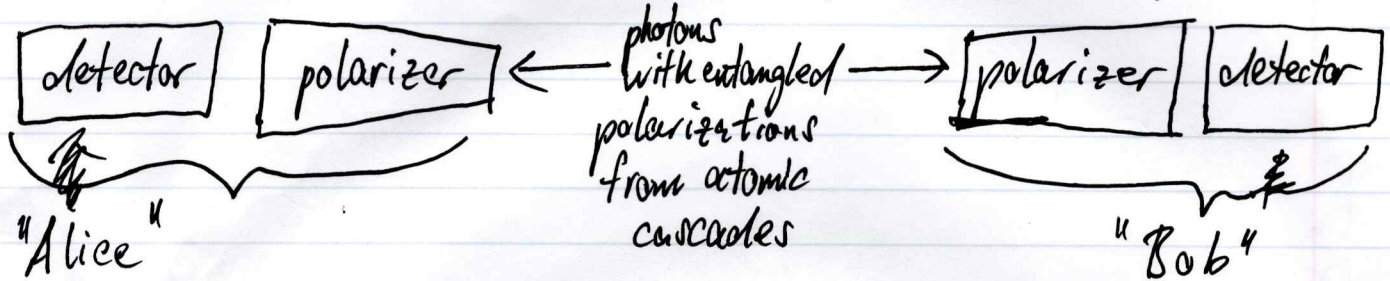 detector
polarizer
photons
with entangled
polarizations
from atomic
cascades
polarizer
detector
"Alice"
"Bob"